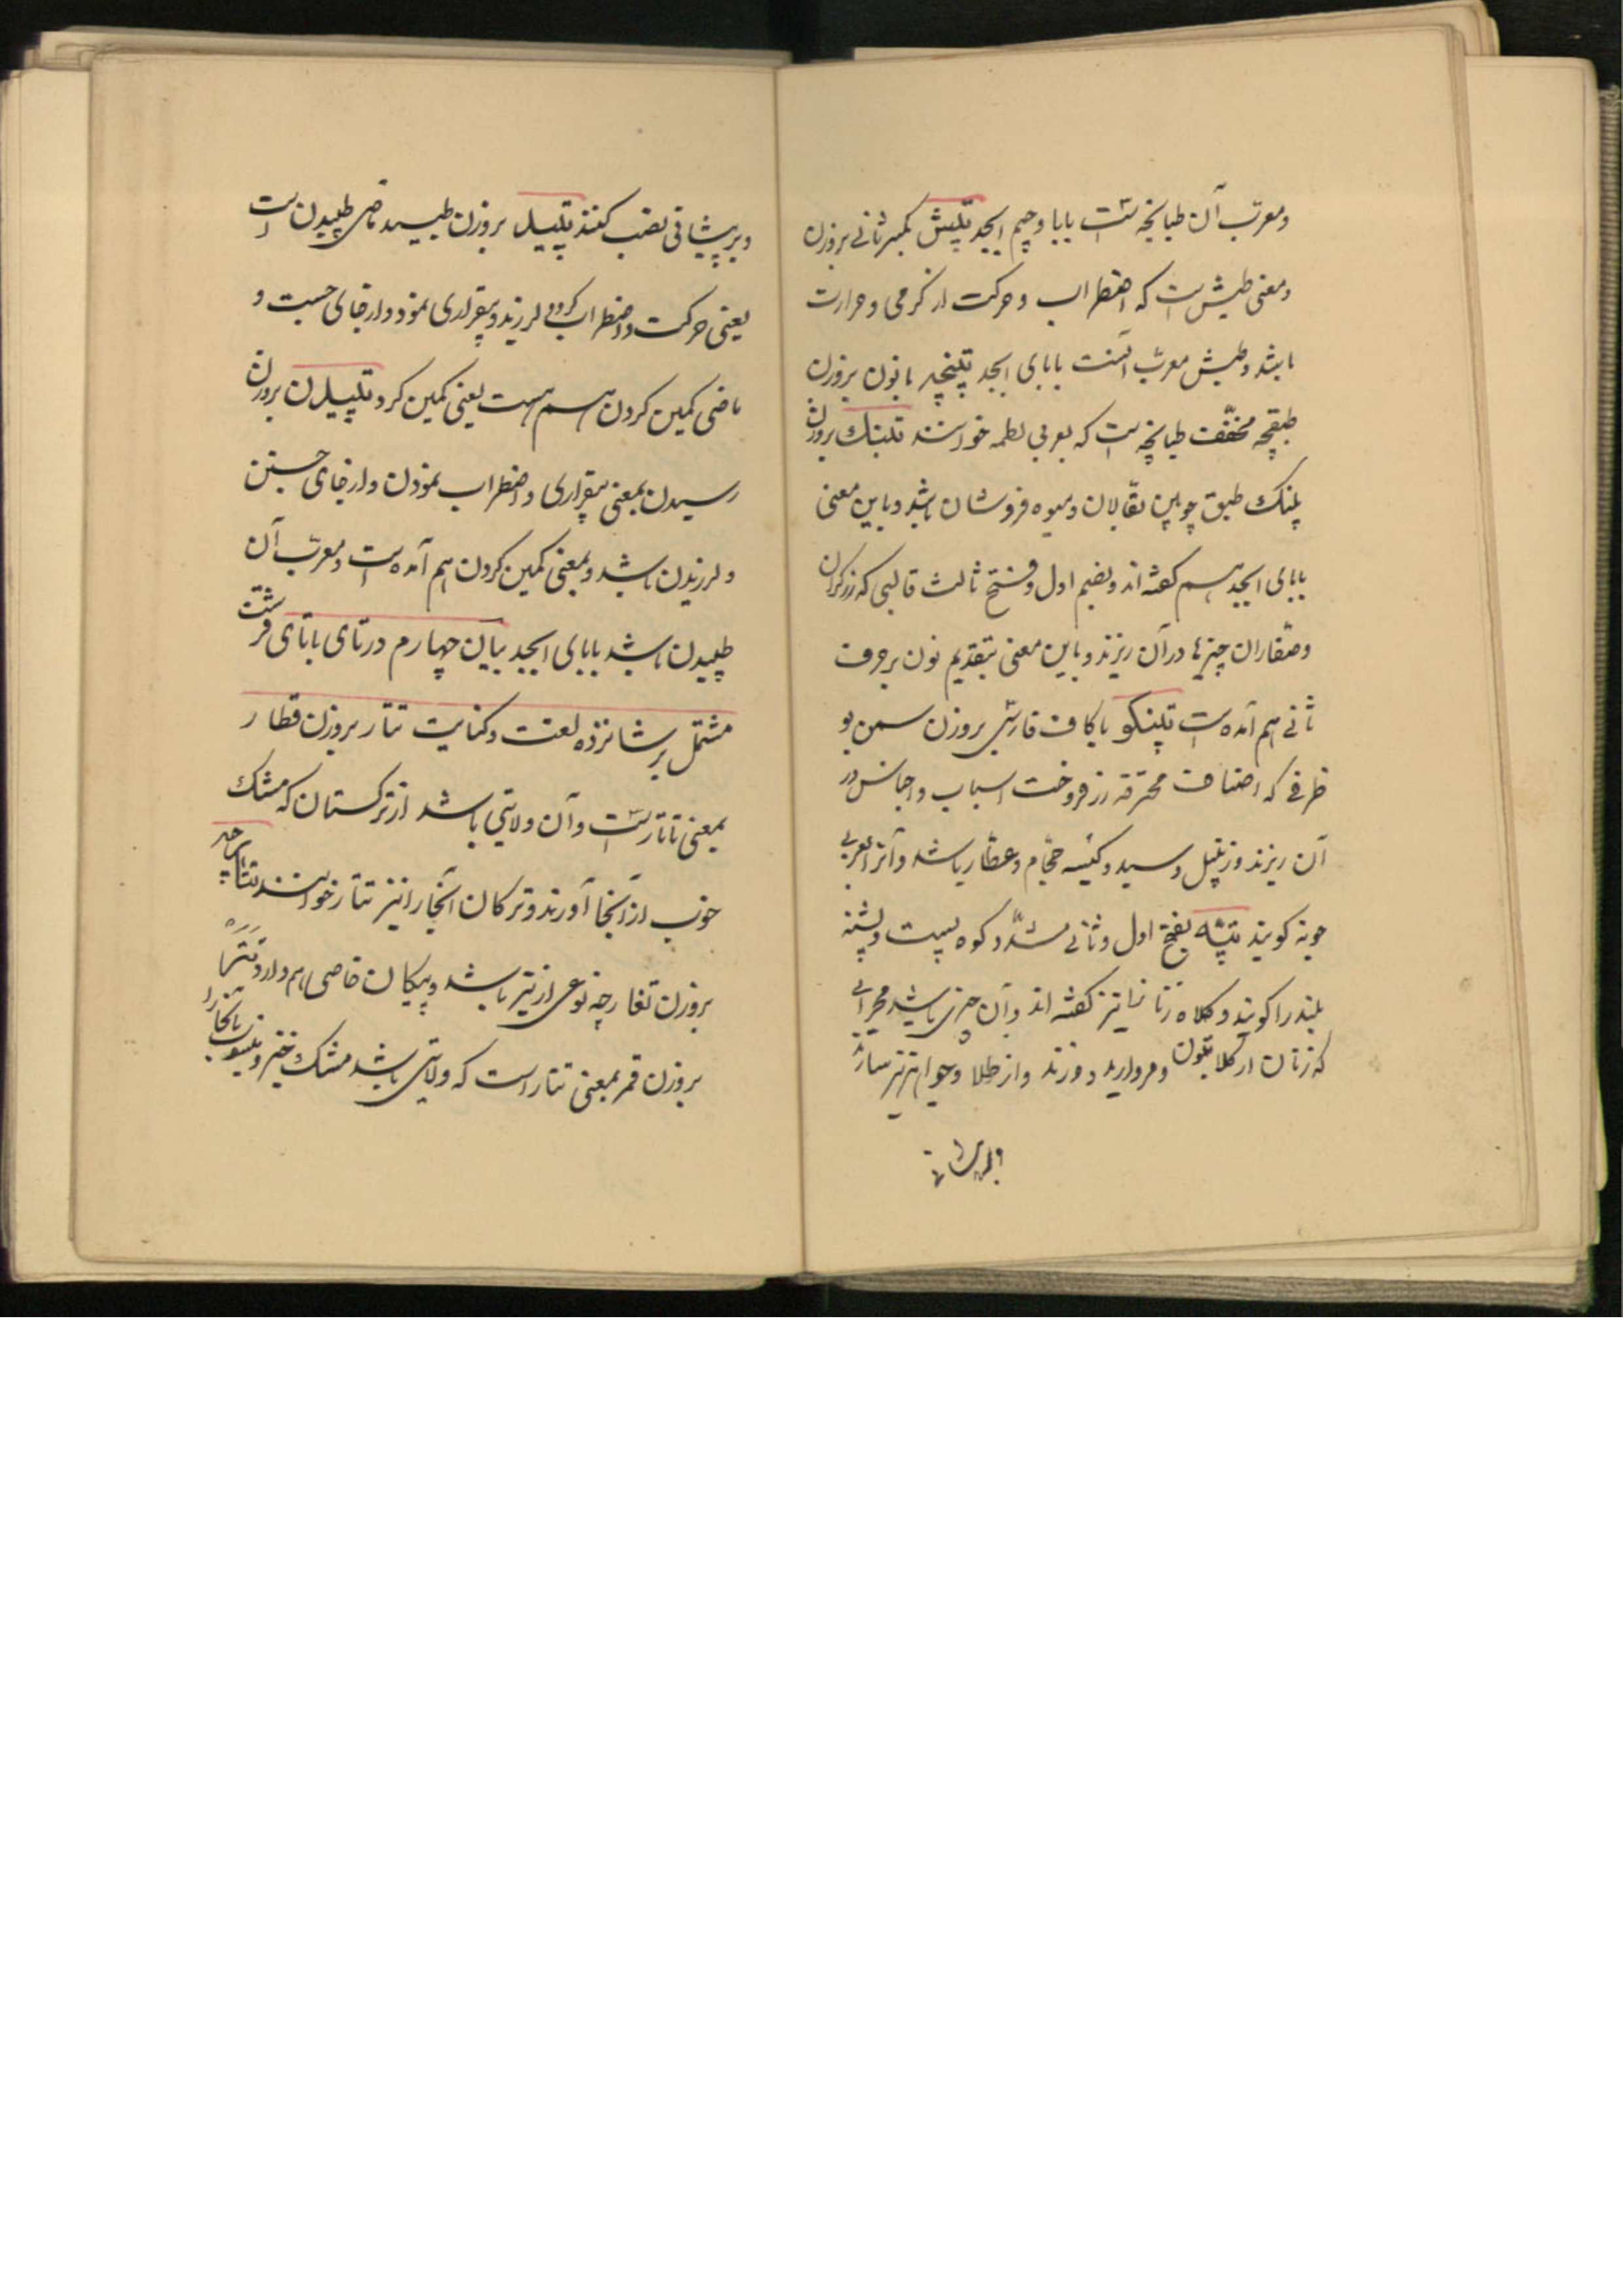 ومعرب آن طپانچه است بابا وجیم ابجد تپش بکسر ثانی بروزن
ومعنی طپش است که اضطراب وحرکت از گرمی وحرارت
باشد وطبش معرب آنست بابای ابجد تپنچه بانون بروزن
طبقچه مخفف طپانچه است که بعربی لطمه خوانند تپنک بروزن
پلنک طبق چوبین بقالان ومیوه فروشان باشد وباین معنی
بابای ابجد هم گفته اند وبضم اول وفتح ثالث قالبی که زرگران
وصفاران چیزها درآن ریزند وباین معنی بتقدیم نون برحرف
ثانی هم آمده است تپنکو باکاف فارسی بروزن سمن بو
ظرفی که اصناف محترفه زر فروخت اسباب واجناس در
آن ریزند وزنبیل وسبد وکیسه حجام وعطار باشد وآنرا بعربی
جونه کویند تپه بفتح اول وثانی مشدد کوه پست وپشته
بلند را کویند وکلاه زنانرا نیز گفته اند وآن چیزی باشد محرابی
که زنان از کلابتون ومروارید دوزند واز طلا وجواهر نیز سازند
وبرپیشانی
وبرپیشانی نصب کنند تپید بروزن طبید ماضی طپیدن است
یعنی حرکت واضطراب کرد ولرزید وبیقراری نمود وازجای جست و
ماضی کمین کردن هم هست یعنی کمین کرد تپیدن بروزن
رسیدن بمعنی بیقراری واضطراب نمودن وازجای جستن
ولرزیدن باشد وبمعنی کمین کردن هم آمده است ومعرب آن
طبیدن باشد بابای ابجد بیان چهارم درتای باتای قرشت
مشتمل بر شانزده لغت وکنایت تتار بروزن قطار
بمعنی تاتارست وآن ولایتی باشد از ترکستان که مشک
خوب ازآنجا آورند وترکان آنجا را نیز تتار خوانند تتارچه
بروزن تغارچه نوعی از تیر باشد وپیکان خاصی هم دارد تتر
بروزن قمر بمعنی تتار است که ولایتی باشد مشک خیز ومنسوب بآنجا را